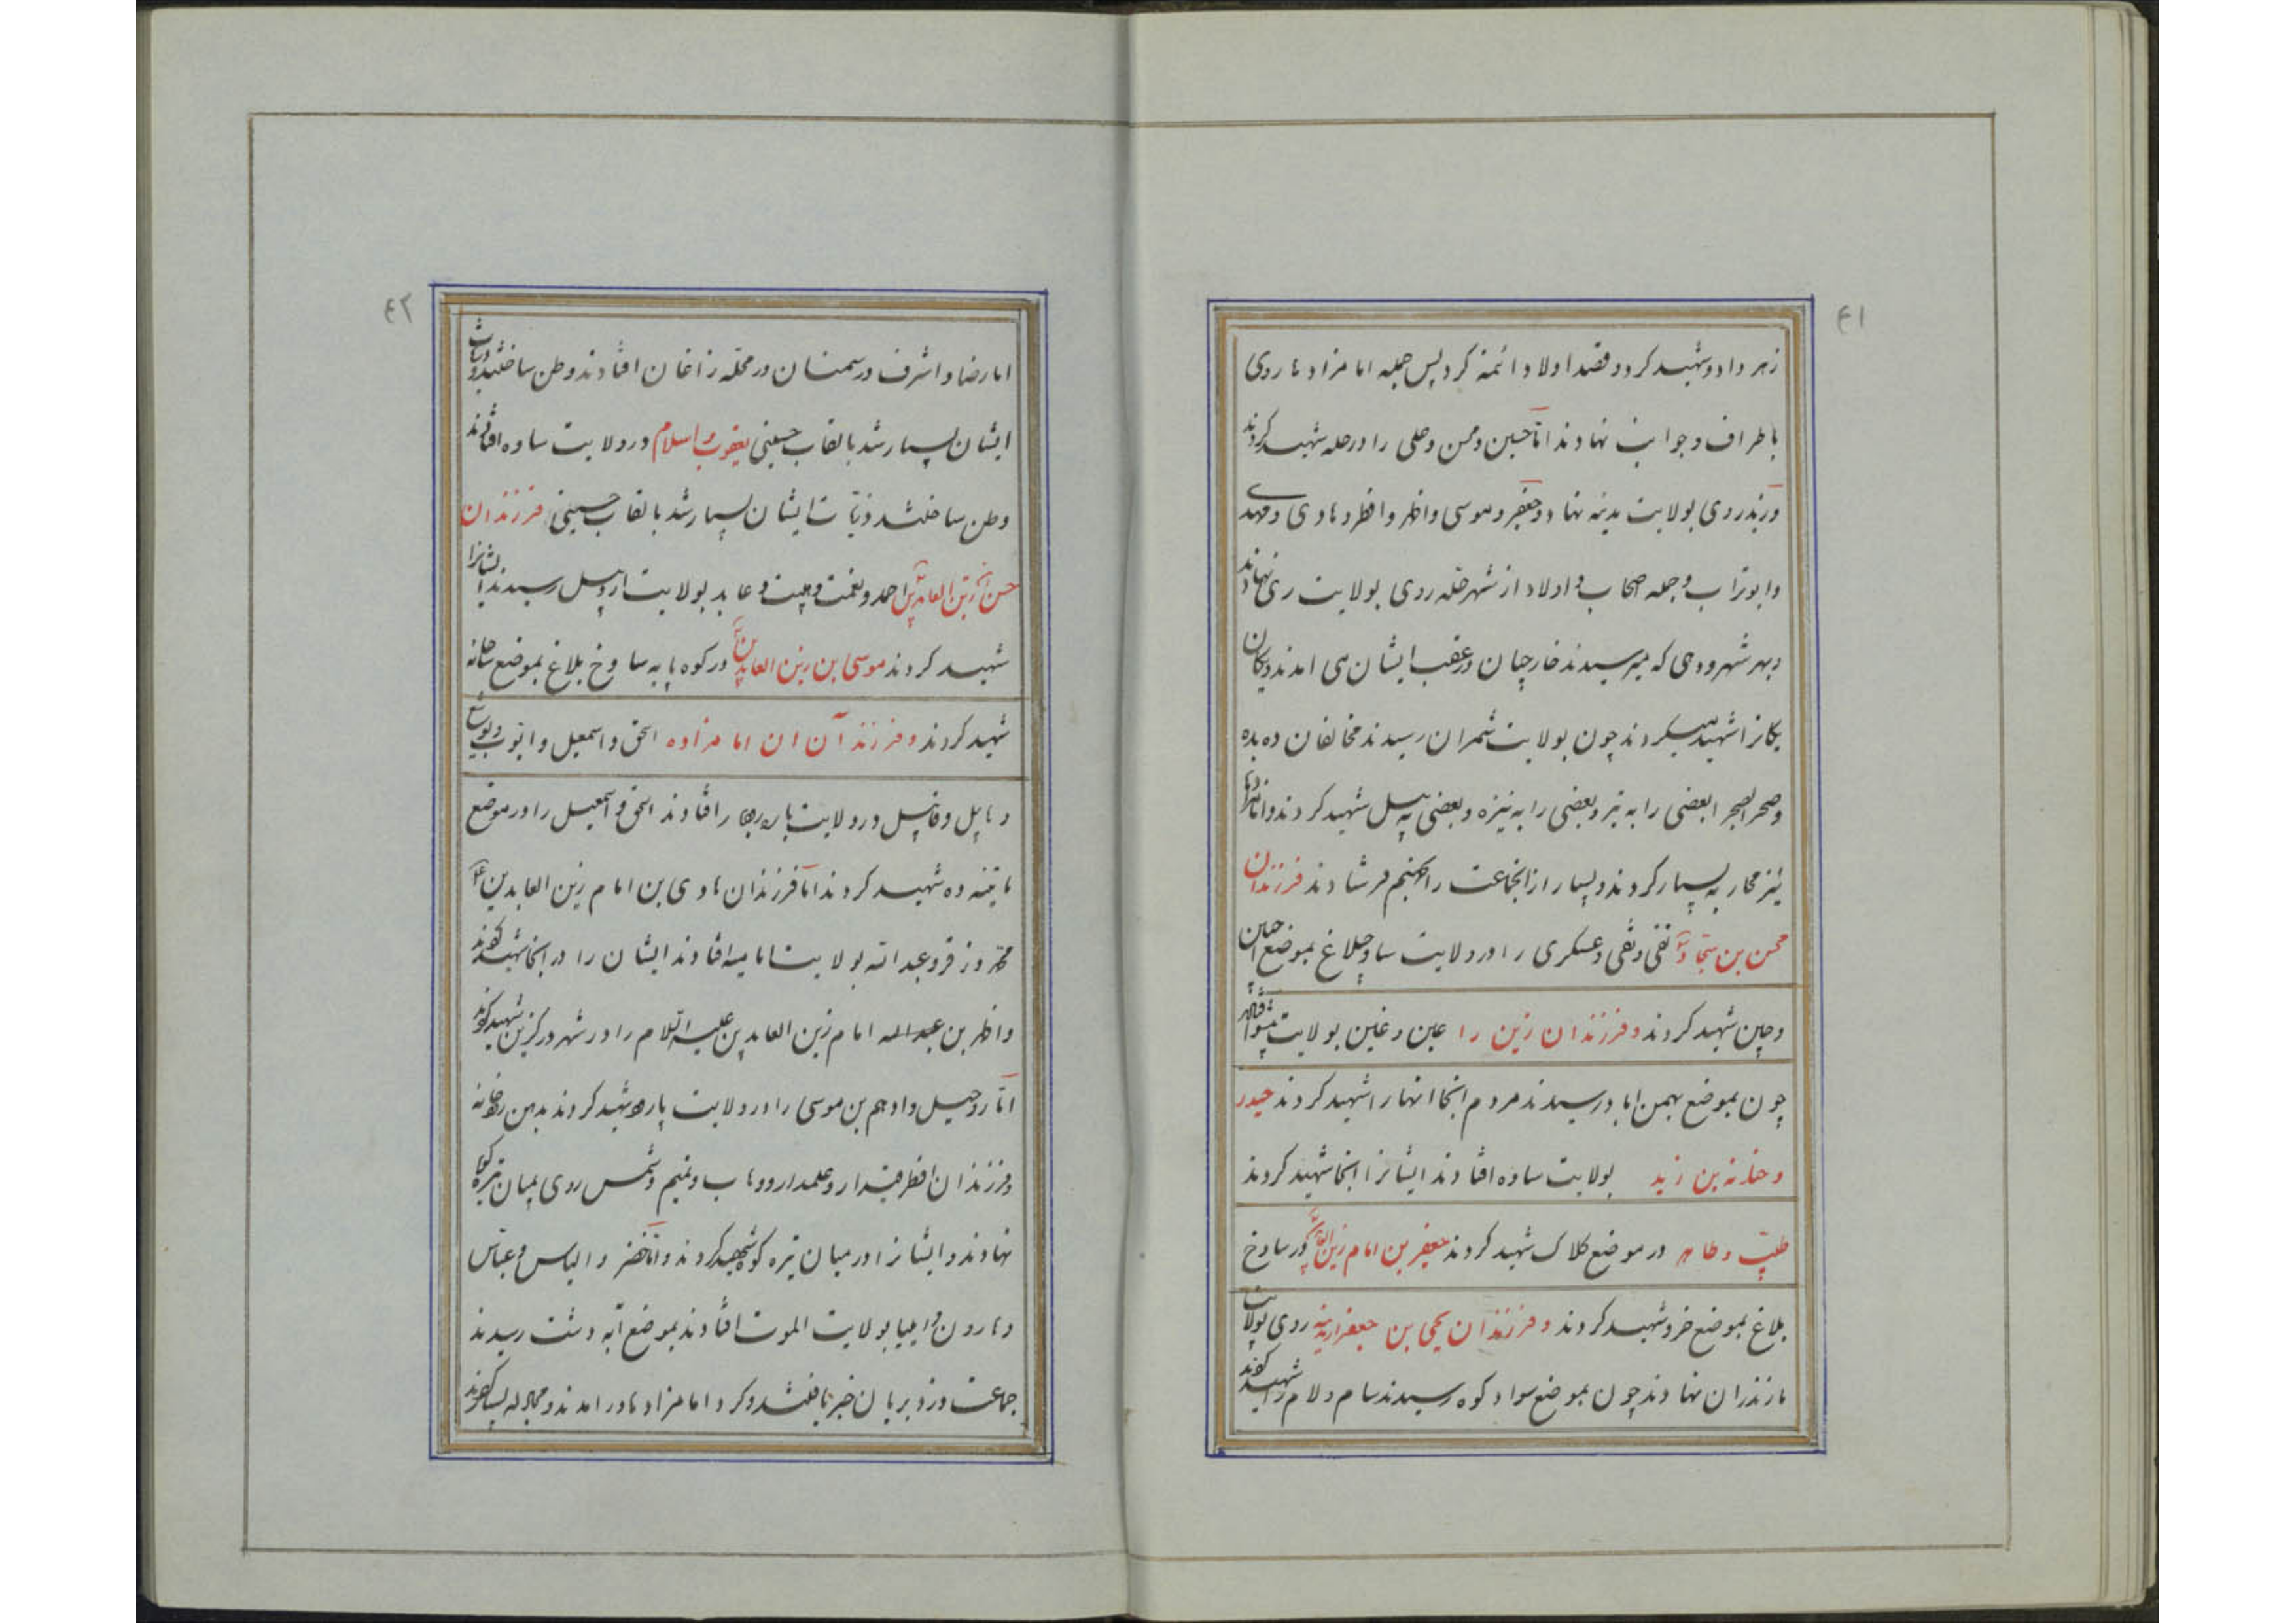 ۴۱
زهر داد و شهید کرد و قصد اولاد ائمه کرد پس جمله امامزادها روی
باطراف و جوانب نهادند اما حسین و محسن و علی را در حله شهید کردند
و زید روی بولایت مدینه نهاد و جعفر و موسی و اظهر و افطر و هادی و مهدی
و ابوتراب و جمله اصحاب و اولاد از شهر حله روی بولایت ری نهادند
و بهر شهر و دهی که میرسیدند خارجیان در عقب ایشان می امدند و یکان
یکانرا شهید میکردند چون بولایت شمران رسیدند مخالفان ده بده
و صحرا بصحرا بعضی را به تیر و بعضی را به نیزه و بعضی به بیل شهید کردند و امامزادها
نیز محاربه بسیار کردند و بسیار از انجماعت را بجهنم فرستادند فرزندان
محسن بن سجاد نقی و تقی و عسکری را در ولایت ساوجبلاغ بموضع
و چین شهید کردند و فرزندان زین را عین و غین بولایت
چون بموضع بهمن اباد رسیدند مردم انجا انها را شهید کردند حیدر
و بن زید بولایت ساوه افتادند ایشانرا انجا شهید کردند
طیب و طاهر در موضع کلاک شهید کردند جعفر بن امام زین العابدین در ساوخ
بلاغ بموضع خرو شهید کردند و فرزندان یحیی بن جعفر روی بولایت
مازندران نهادند چون بموضع سواد کوه رسیدند سام و لام را شهید کردند
۴۲
اما رضا و اشرف در سمنان در محله زاغان افتادند و وطن ساختند و ذریات
ایشان بسیار شد بالقاب حسینی یعقوب و اسلام در ولایت ساوه افتادند
وطن ساختند و ذریات ایشان بسیار شد بالقاب حسینی فرزندان
حسن بن زین العابدین احمد و نعمت و و عابد بولایت اردبیل رسیدند ایشانرا
شهید کردند موسی ابن زین العابدین در کوه پایه ساوخ بلاغ بموضع
شهید کردند و فرزندآن ان امامزاده اسحق و اسمعیل و ایوب و یوشع
و هابیل و قابیل در ولایت افتادند اسحق و اسمعیل را در موضع
ده شهید کردند اما فرزندان هادی بن امام زین العابدین ع
محمد و زفر و عبدالله بولایت افتادند ایشان را در انجا شهید کردند
و اظهر بن عبدالله امام زین العابدین علیه السلام را در شهر درگزین شهید کردند
اما روحیل و ادهم بن موسی را در ولایت شهید کردند بدین
و فرزندان افطر قیدار و علمدار و وهاب و نعیم و شمس روی بمیان تیره کوه
نهادند و ایشانرا در میان تیره کوه شهید کردند و اما خضر و الیاس و عباس
و هارون و ایلیا بولایت الموت افتادند بموضع دشت رسیدند
جماعت خبر یافتند و کرد امامزادها در امدند و مجادله بسیار کردند